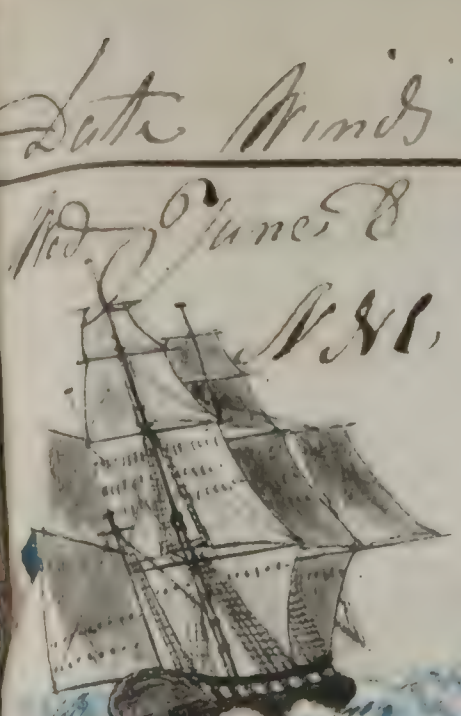 Date Winds
Wed. June 8